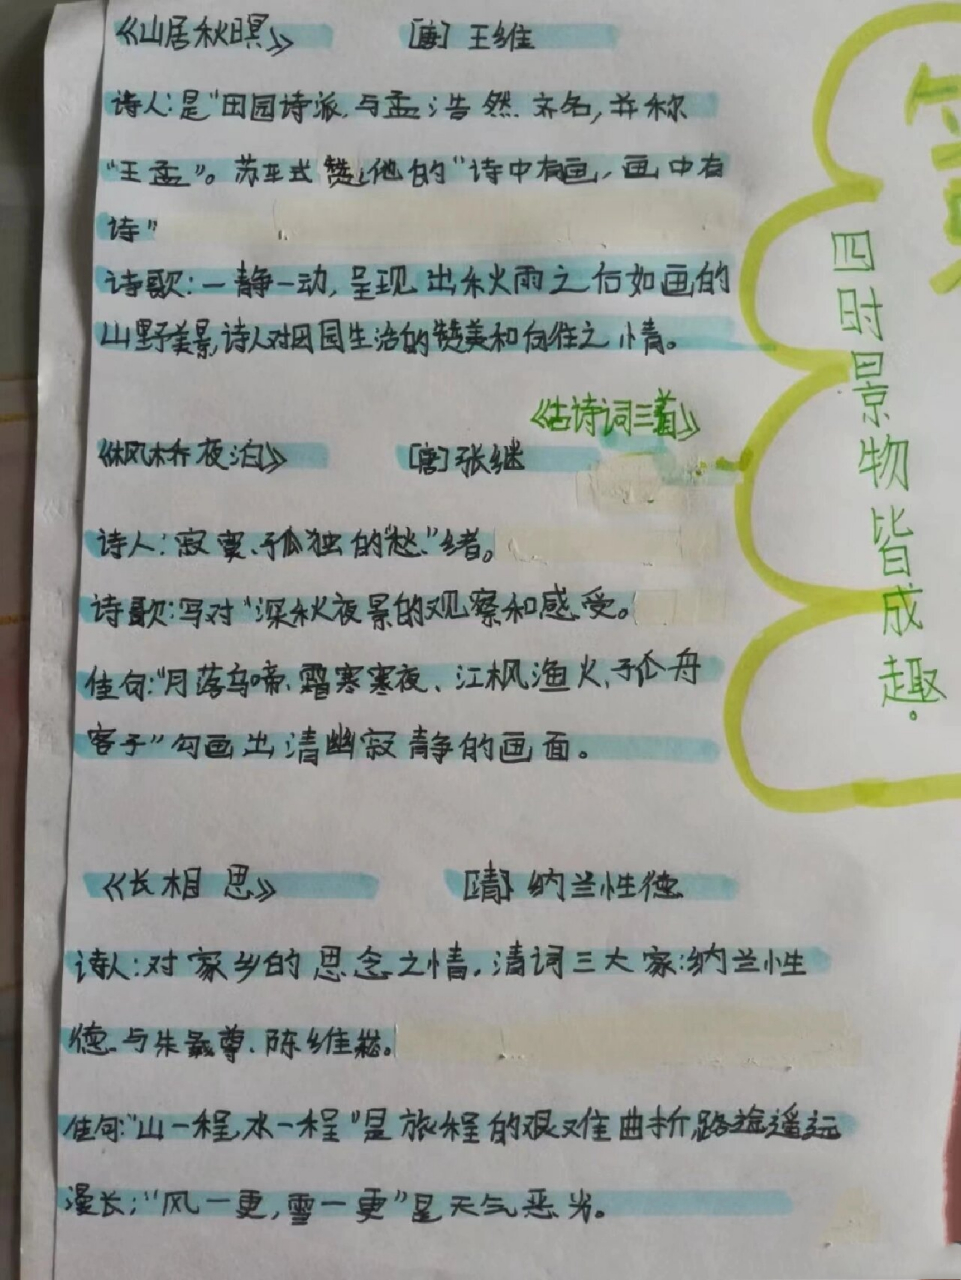 《山居秋暝》 [唐] 王维
诗人:是"田园诗派,与孟浩然 齐名,并称
"王孟"。苏轼赞他的"诗中有画,画中有
诗"
诗歌:一静一动,呈现出秋雨之后如画的
山野美景,诗人对田园生活的赞美和向往之情。
《古诗词三首》
《枫桥夜泊》 [唐]张继
诗人:寂寞、孤独的"愁"绪。
诗歌:写对"深秋夜景的观察和感受。
佳句:"月落乌啼、霜寒寒夜、江枫渔火、孤舟
客子"勾画出清幽寂静的画面。
《长相思》 [清] 纳兰性德
诗人:对家乡的思念之情。清词三大家:纳兰性
德与朱彝尊、陈维崧。
佳句:"山一程,水一程"是旅程的艰难曲折,路途遥远
漫长;"风一更,雪一更"是天气恶劣。
四时景物皆成趣。